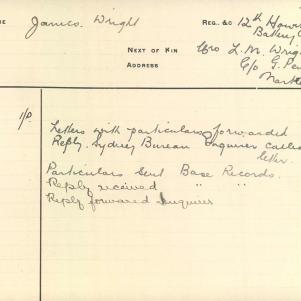 James Wright
REG. & C 12th How
Battery
NEXT OF KIN
ADDRESS
L. M. Wrig
C/o G. Pen
Letters with particulars forwarded
Reply. Sydney Bureau Enquirer called
letter.
Particulars Sent Base Records.
Reply received " "
Reply forwarded Enquirer